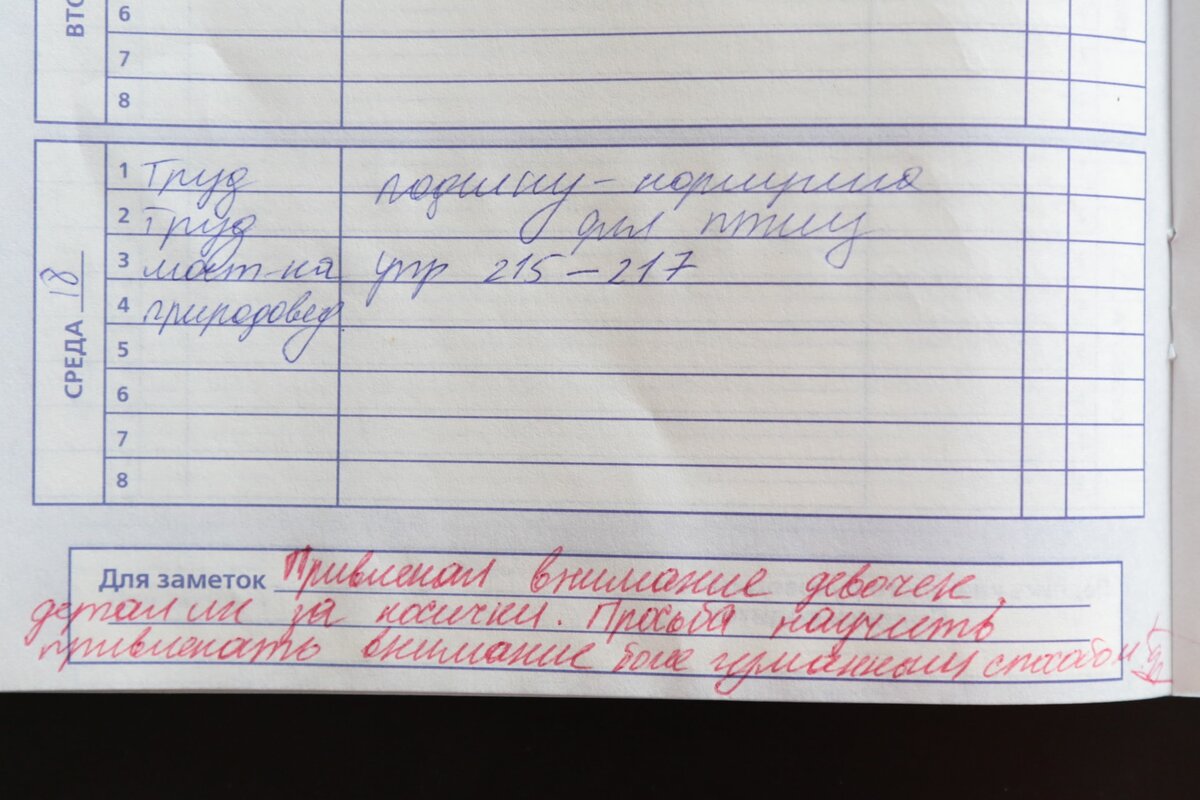 ВТО
6
7
8
СРЕДА 18
1 Труд поделку - кормушка
2 Труд для птиц
3 мат-ка упр 215-217
4 природовед.
5
6
7
8
Для заметок Привлекал внимание девочек,
дергал их за косички. Просьба научить
привлекать внимание более гуманным способом